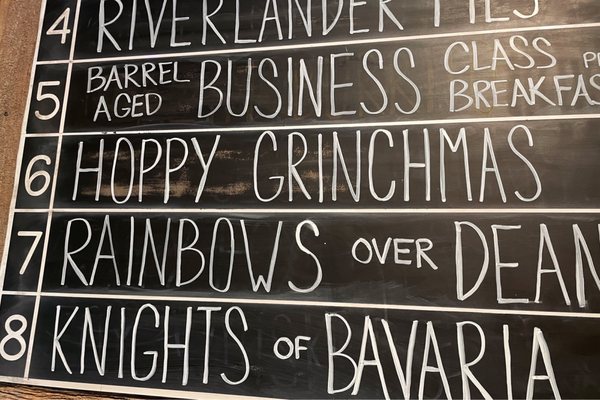 4 RIVERLANDER
5 BARREL AGED BUSINESS CLASS
BREAKFAS
6 HOPPY GRINCHMAS
7 RAINBOWS OVER DEAN
8 KNIGHTS OF BAVARIA